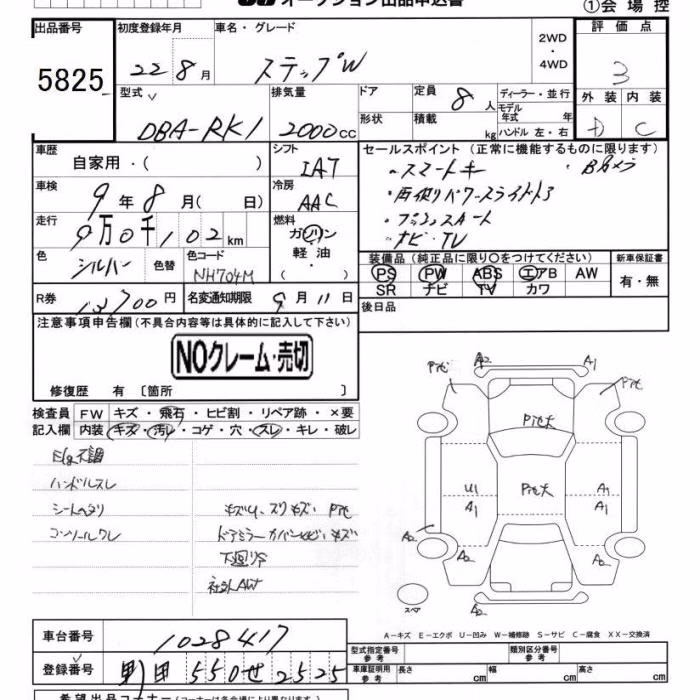 オークション出品申込書
①会場控
出品番号 初度登録年月 車名・グレード 2WD・4WD 評価点
5825 22 8月 ステップW 3
型式 排気量 ドア 定員 8人 ディーラー・並行 外装 内装
DBA-RK1 2000cc 形状 積載 kg モデル年式 年 ハンドル 左・右 D C
車歴 自家用・( ) シフト IAT セールスポイント (正常に機能するものに限ります)
・スマートキー ・Bカメラ
車検 9年8月( 日) 冷房 AAC ・両側パワースライドドア
走行 9万0千102km 燃料 ガソリン・軽油・( ) ・プッシュスタート
・ナビ・TV
色 シルバー 色替 色コード NH704M 装備品 (純正品に限り○をつけてください) 新車保証書
PS PW ABS エアB AW 有・無
SR ナビ TV カワ
R券 円 名変通知期限 9月11日 後日品
注意事項申告欄(不具合内容等は具体的に記入して下さい)
NOクレーム・売切
修復歴 有 〔箇所 〕
検査員 FW キズ・飛石・ヒビ割・リペア跡・×要
記入欄 内装 キズ・汚レ・コゲ・穴・スレ・キレ・破レ
Eg不調
ハンドルスレ
シートヘタリ
コンソールワレ
下廻りサ
社外AW
A2 A1
U1 A1
A1 A1
A2 A2
A2
スペア
A2
A-キズ E-エクボ U-凹み W-補修跡 S-サビ C-腐食 XX-交換済
車台番号 1028417 型式指定番号 参考 類別区分番号 参考
登録番号 550せ2525 車庫証明用 参考 長さ cm 幅 cm 高さ cm
希望出品コーナー (コーナーは各会場により異なります。)